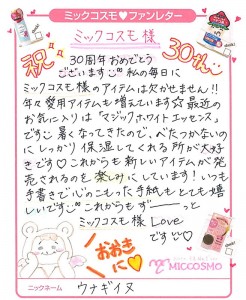 ミックコスモ♥ファンレター
ミックコスモ様
祝
30th
30周年おめでとう
ございます 私の毎日に
ミックコスモ様のアイテムは欠かせません!!
年々愛用アイテムも増えています☆最近の
お気に入りは「マジックホワイトエッセンス」
です 暑くなってきたので、べたつかないの
にしっかり保湿してくれる所が大好
きです♡これからも新しいアイテムが発
売されるのを楽しみにしています!いつも
手書きで心のこもったお手紙もとても嬉
しいです これからもずーーっと
ミックコスモ様 Love
です
おおきに♡
MICCOSMO
ニックネーム
ウナギイヌ